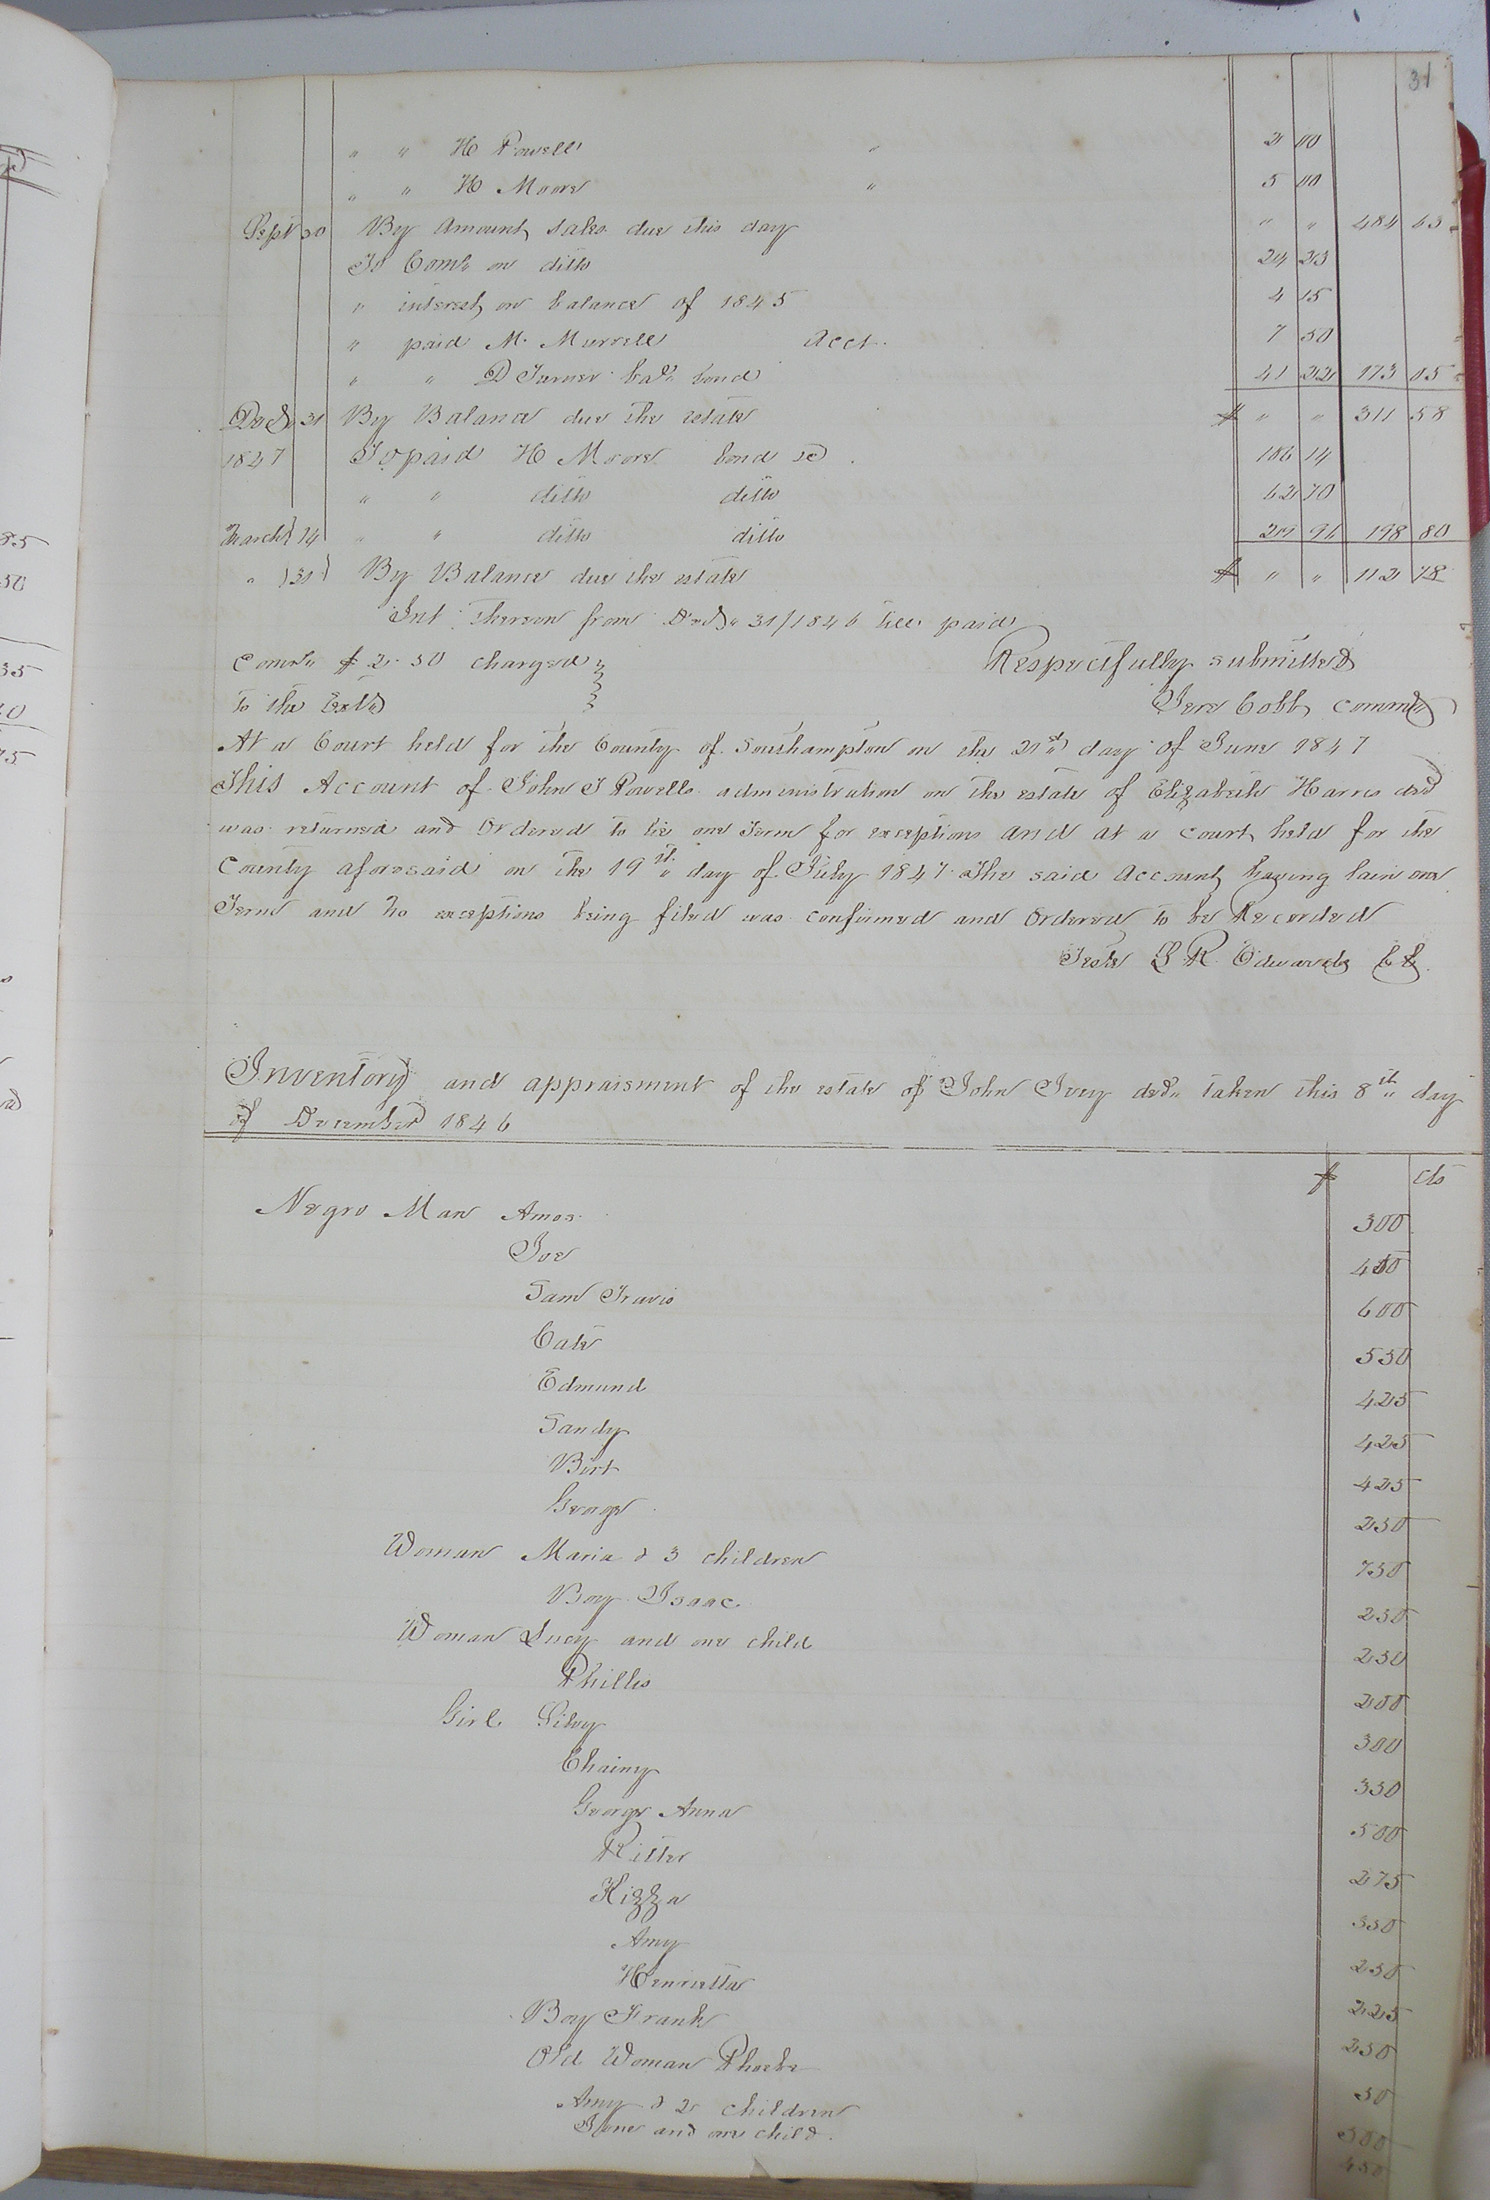 31
" " H Powell " 2 00
" " H Moore " 5 00
Sept 30 By Amount sales due this day " " 484 63
To Coms on ditto 24 23
" interest on balance of 1845 4 15
" paid M. Murrell Acct. 7 50
" " D Turner bal. bond 41 22 173 05
Decr 31 By Balance due the estate $ " " 311 58
1847 To paid H Moore bond &c 106 14
" " ditto ditto 62 70
March 14 " " ditto ditto 29 96 198 80
" 31 By Balance due the estate $ " " 112 78
Int thereon from Decr 31/1846 till paid
Comr $2.50 charged Respectfully submitted
to the Est. Jere Cobb commr
At a Court held for the County of Southampton on the 21st day of June 1847
This Account of John T Powells administration on the estate of Elizabeth Harris decd
was returned and Ordered to lie one Term for exceptions and at a court held for the
County aforesaid on the 19th day of July 1847 The said Account having lain one
Term and no exceptions being filed was confirmed and Ordered to be Recorded
Teste L R Edwards CC
Inventory and appraisment of the estate of John Ivey decd taken this 8th day
of December 1846
$ cts
Negro Man Amos 300
Joe 400
Sam Travis 600
Cate 550
Edmund 425
Sandy 425
Birt 425
George 250
Woman Maria & 3 children 750
Boy Isaac 250
Woman Lucy and one child 250
Phillis 200
Girl Silvy 300
Chainy 350
George Anna 500
Ritter 275
Kizza 350
Amy 250
Henrietta 225
Boy Frank 250
Old Woman Phoebe 50
Amy & 2 children 500
Jane and one child. 450